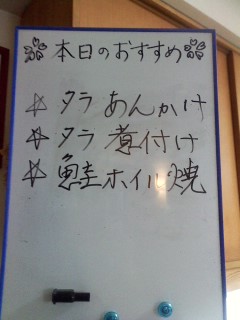 本日のおすすめ
☆ タラ あんかけ
☆ タラ 煮付け
☆ 鮭ホイル焼